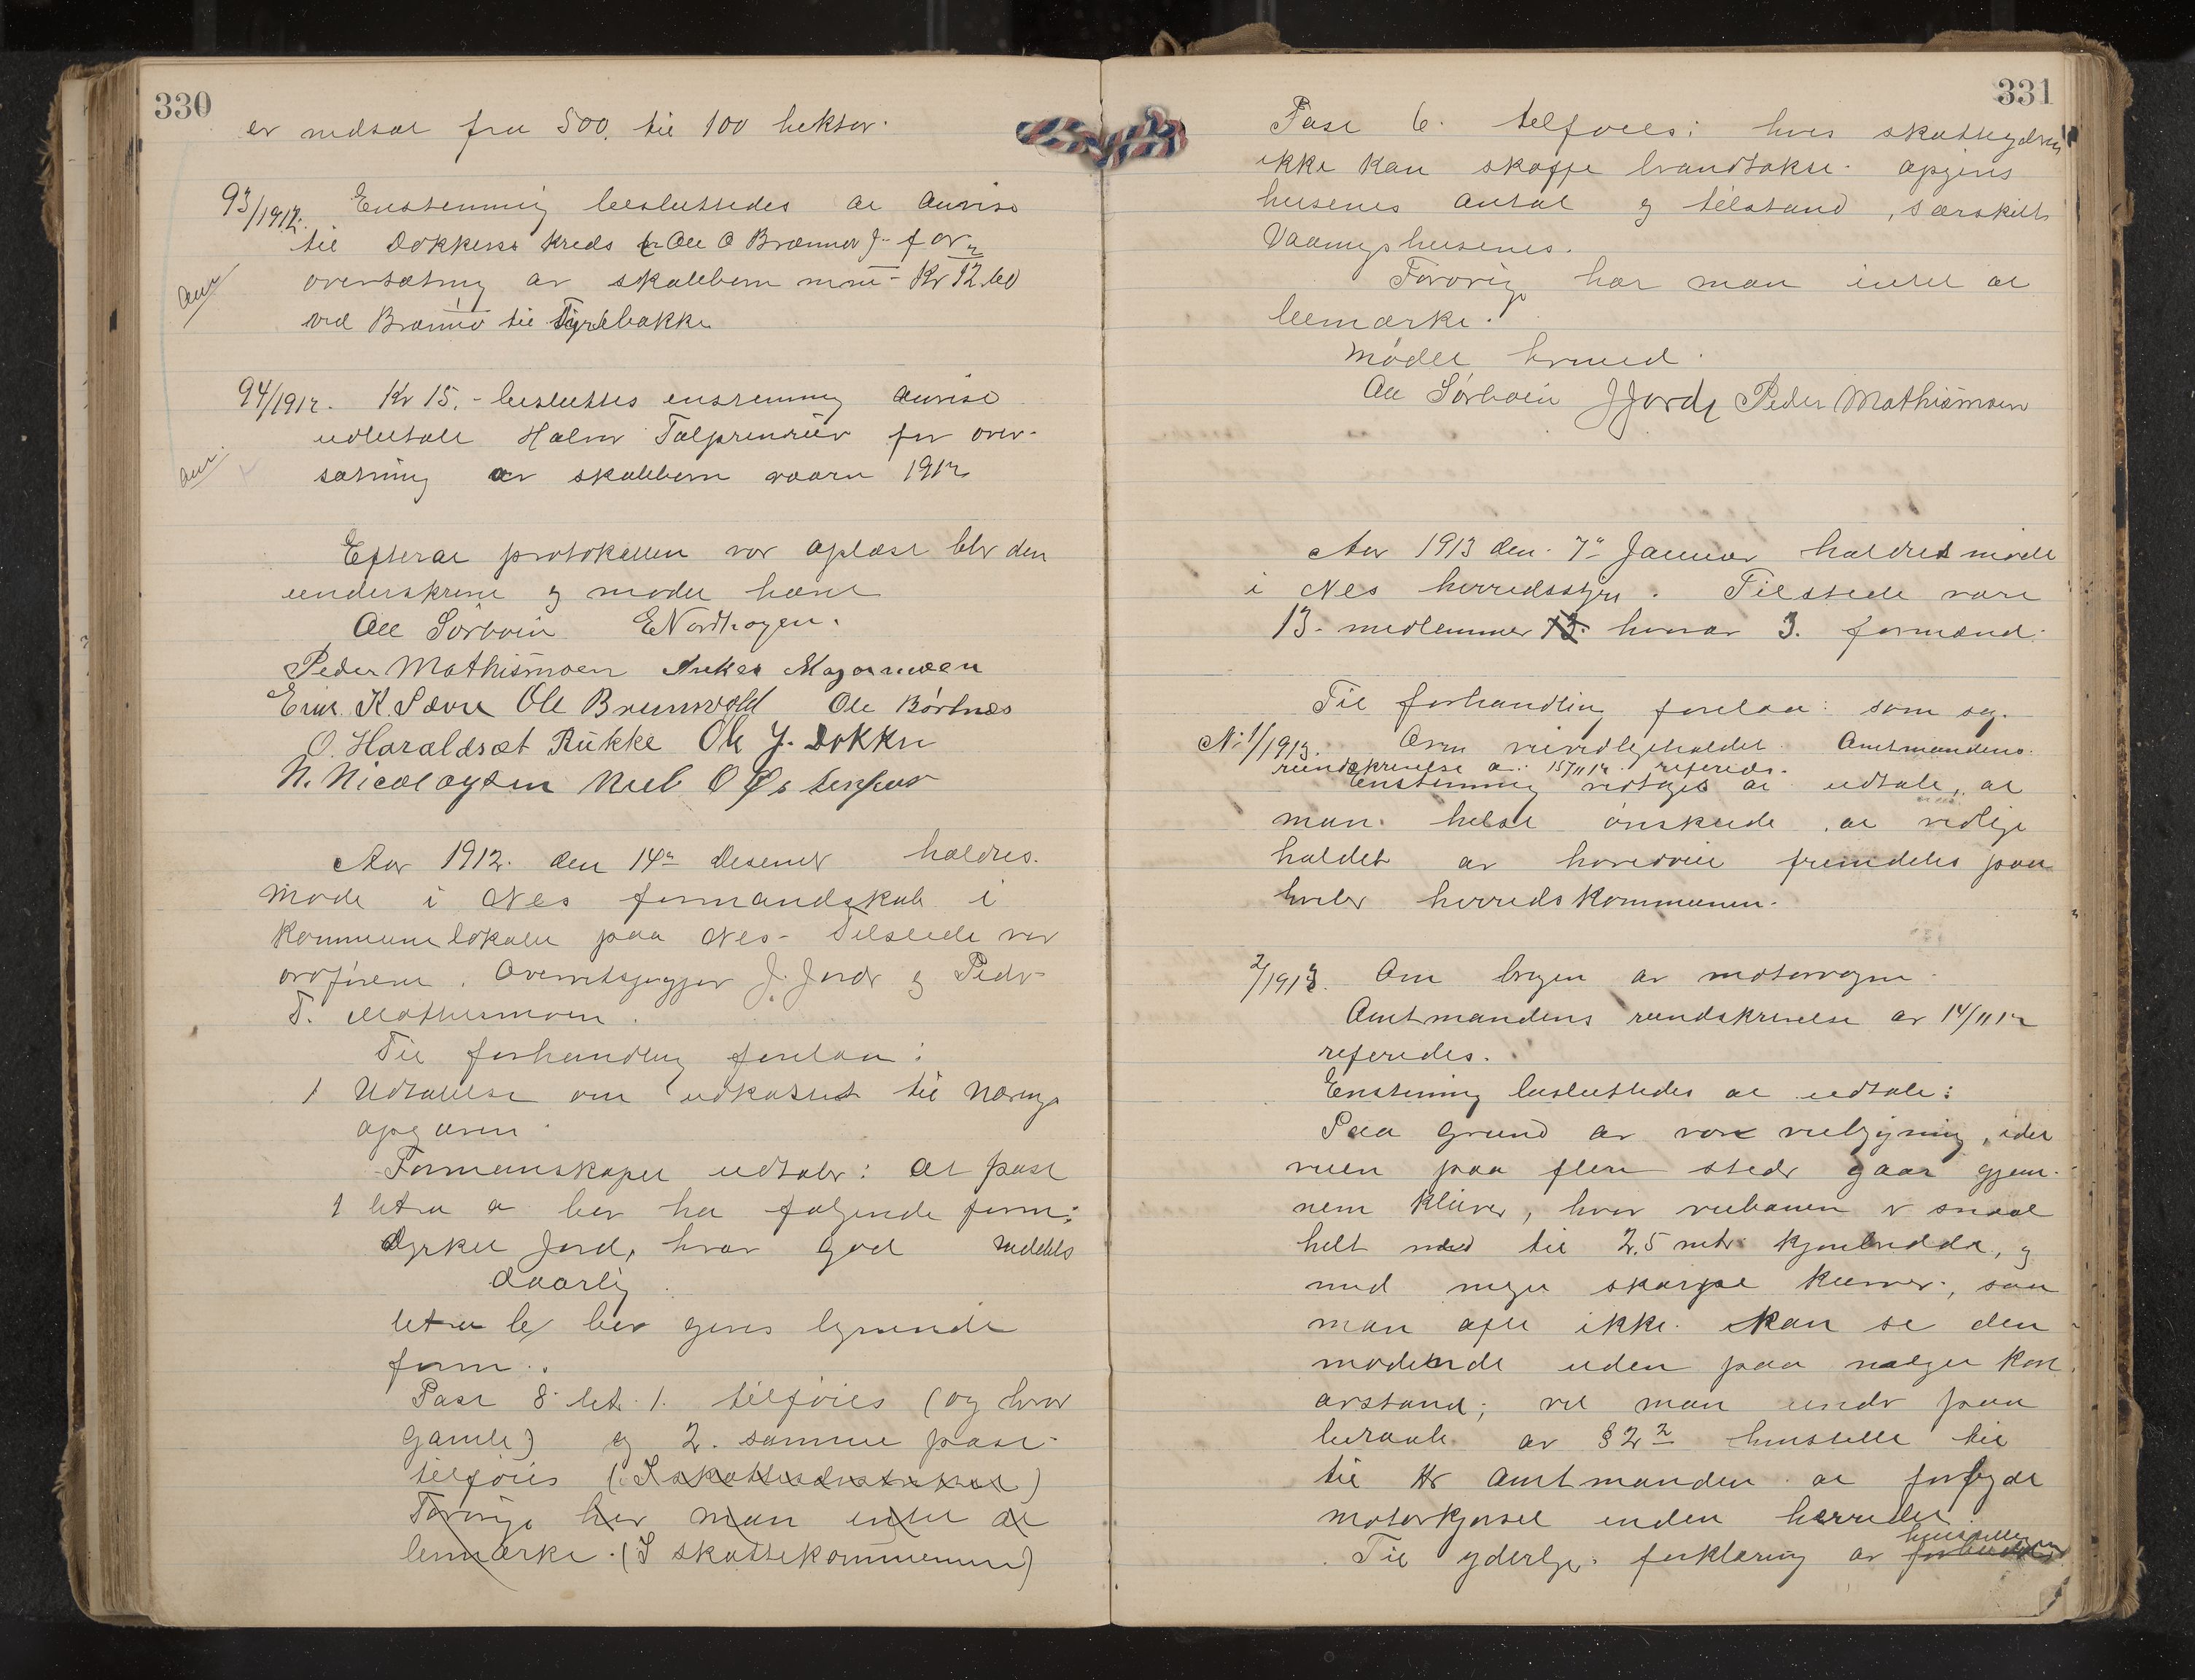 330
er nedsat fra 500. til 100 hektar.
93/1912. Enstemmig besluttedes at anvise
til Dokkens kreds (ved Ole O Brænno) for
oversætning av skabbern m m - Kr 12.60
ved Brænno til Tyribakke
Anv
94/1912. Kr 15.- besluttes enstemmig anvise
udbetalt Halvor for over-
Anv.
sætning av skabbern vaarn 1912
Efterat protokollen var oplæst blev den
underskreve og mødet hævet
Ole Sørbøin ENordhagen.
Peder Mathismoen Anker Magormoen
Erik K. Sævre Ole Brunsvold Ole Børtnes
O. Haraldset Rukke Ole J. Dokken
N. Nicolaysen Neub O
Aar 1912. den 14de Desember holdtes.
møde i Nes formandskab i
Kommunelokalet paa Nes- Tilstede var
ordføreren. Overretssagfører J. Jorde og Peder
T. Mathismoen.
Til forhandling forelaa:
1 Udtalelse om udkastet til nærings
opgaven.
Formanskapet udtaler: at post
1 litra a bør ha følgende form:
Dyrket Jord, hvor god middels
daarlig.
litra b/ bør gives lignende
form..
Post 8 lit. 1. tilføies (og hvor
gamle) og 2. samme post-
tilføies (I skattedistriktet)
Forøvrig har man intet at
bemærke. (I skattekommunen)
331
Post 6. tilføies: hvis skatteyderen
ikke kan skaffe brandtakst. opgives
husenes antal og tilstand, særskilt
Vaaningshusenes.
Forøvrig har man intet at
bemærke.
Mødet hævet.
Ole Sørbøin JJorde Peder Mathismoen
Aar 1913 den 7de Januar holdtes møde
i Nes herredsstyre. Tilstede vare
13. medlemmer 13. hvorav 3. formænd.
Til forhandling forelaa: som sag.
No 1/1913. Om veivedligeholdet. Amtmandens.
rundskrivelse av 15/11 12. referedes.
Enstemmig vedtages at udtale, at
man helst ønskede at vedlige
holdet av hovedveie fremdeles paa
hviler herredskommunen.
2/1913. Om brugen av motorvogne.
Amtmandens rundskrivelse av 14/11 12
referedes.
Enstemmig besluttedes at udtale:
Paa grund av vore veibygning, idet
veien paa flere steder gaar gjen-
nem kleiver, hvor veibanen er smal
helt ned til 2.5 mtr kjørebredde, og
med meget skarpe kurver, saa
man ofte ikke kan se den
mødende uden paa meget kort
avstand; vil man under paa
beraab av § 2 2 henstille til
til Hr amtmanden at forbyde
motorkjørsel inden herredet.
Til yderlige forklaring av henstillingen